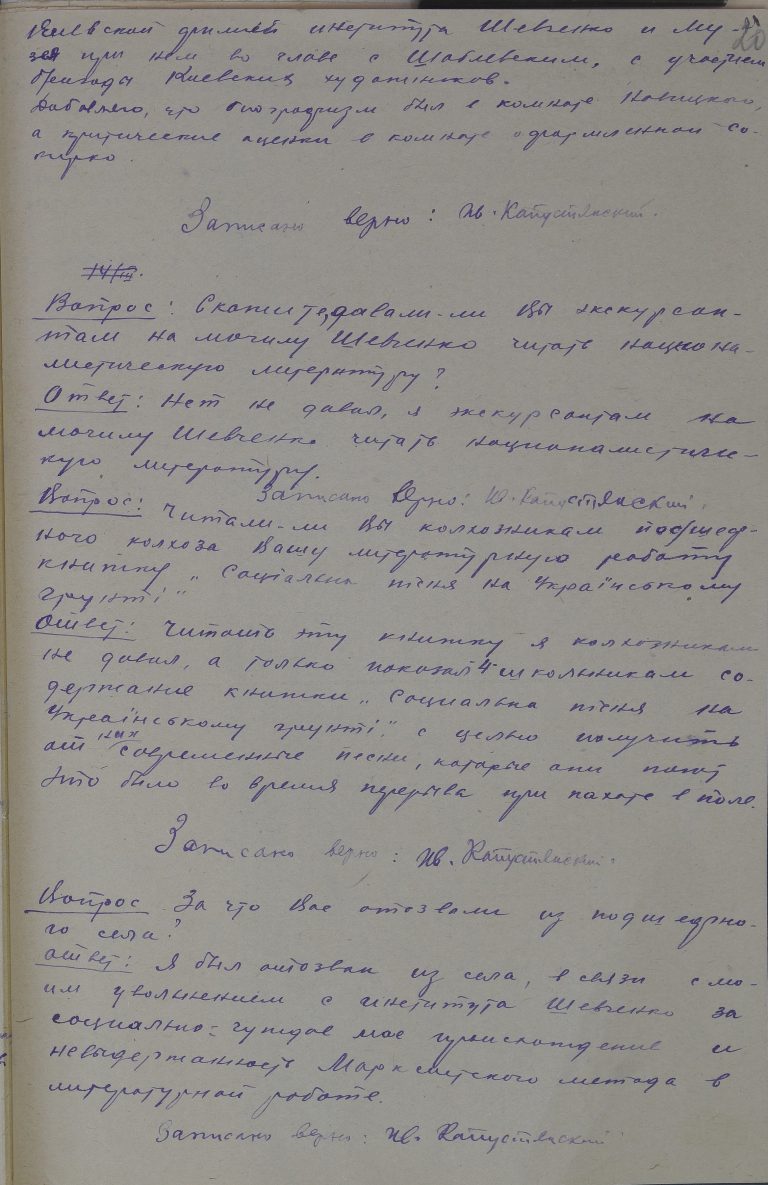 20
Киевской филией института Шевченко и Му-
зея при нем во главе с Шаблевским, с участием
бригады Киевских художников.
Добавляю, что биографизм был в комнате Новицкого,
а критические оценки в комнате оформленной Со-
пирко.
Записано верно: Ив. Капустянский.
14/III.
Вопрос: Скажите, давали-ли Вы экскурсан-
там на могилу Шевченко читать национа-
листическую литературу?
Ответ: Нет не давал, я экскурсантам на
могилу Шевченко читать националистиче-
кую литературу.
Записано верно: Ив. Капустянский.
Вопрос: Читали-ли Вы колхозникам подшеф-
ного колхоза Вашу литературную работу
книжку „Соціальна пісня на Українському
грунті"
Ответ: Читать эту книжку я колхозникам
не давал, а только показал 4 школьникам со-
держание книжки „Социальна пісня на
Українському грунті." с целью получить
от них современные песни, которые они поют
это было во время перерыва при пахоте в поле.
Записано верно: Ив. Капустянский.
Вопрос За что Вас отозвали из подшефно-
го села?
ответ: Я был отозван из села, в связи с мо-
им увольнением с института Шевченко за
социально=чуждое мое происхождение и
невыдержанность Марксистского метода в
литературной работе.
Записано верно: Ив. Капустянский